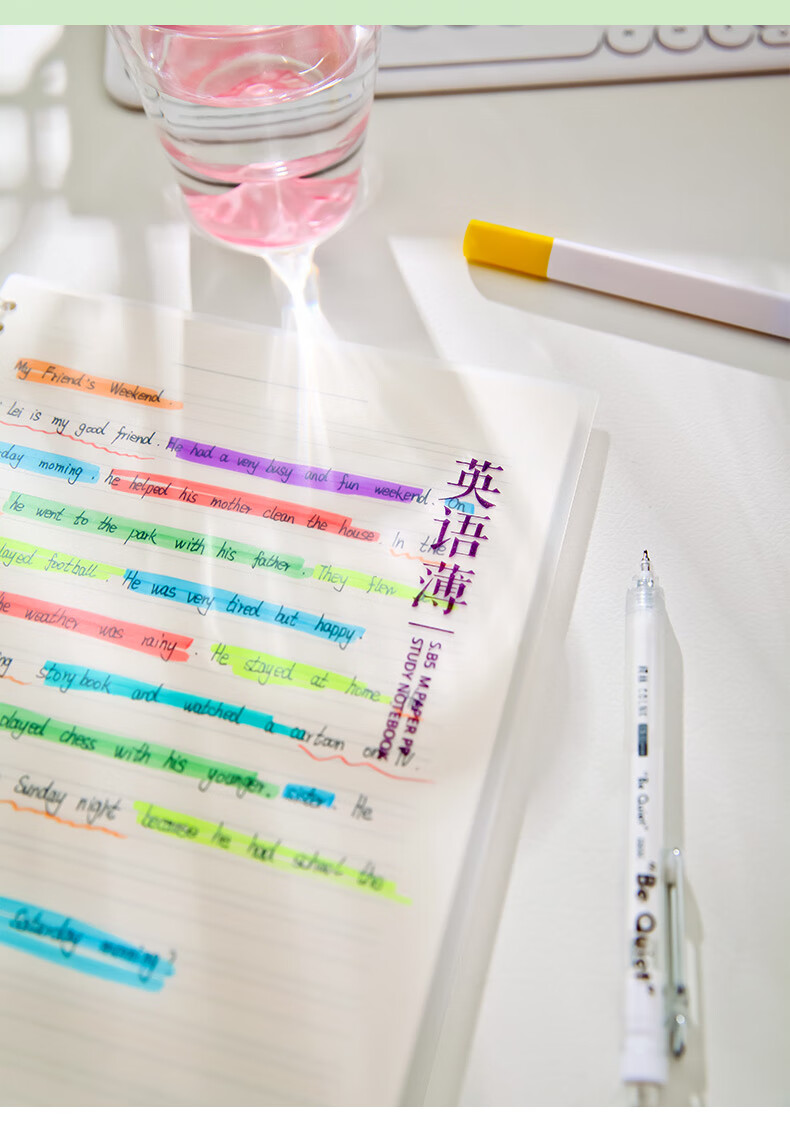 My Friend's Weekend.
Lei is my good friend. He had a very busy and fun weekend. On
day morning. he helped his mother clean the house. In the
he went to the park with his father. They flew
layed football. He was very tired but happy.
he weather was rainy. He stayed at home
ng storybook and watched a cartoon on TV.
played chess with his younger. sister. He
Sunday night because he had school the
Saturday morning?
英语薄
S.B5 M.PAPER.PP
STUDY NOTEBOOK
"Be Quiet"
"Be Quiet"